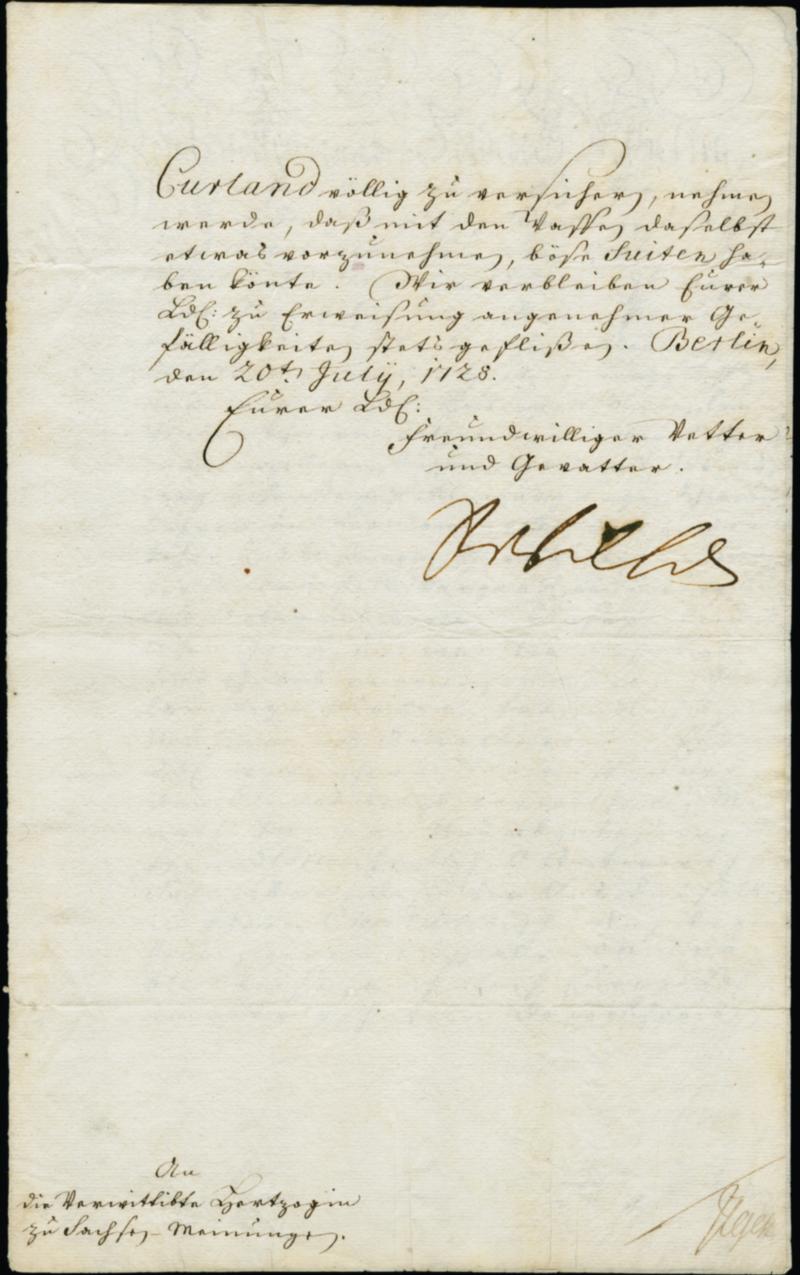 Curland völlig zu versichern, nehmen
werde, daß mit den Vasses daselbst
etwas vorzunehmen, böse Suiten ha-
ben könte. Wir verbleiben Eurer
Ldl: zu Erweisung angenehmer Ge-
fälligkeiten stets geflißen. Berlin,
den 20t. July, 1728.
Eurer Ldl:
Freundwilliger Vetter
und Gevatter.
An
die Verwittibte Hertzogin
zu Sachsen-Meinungen.